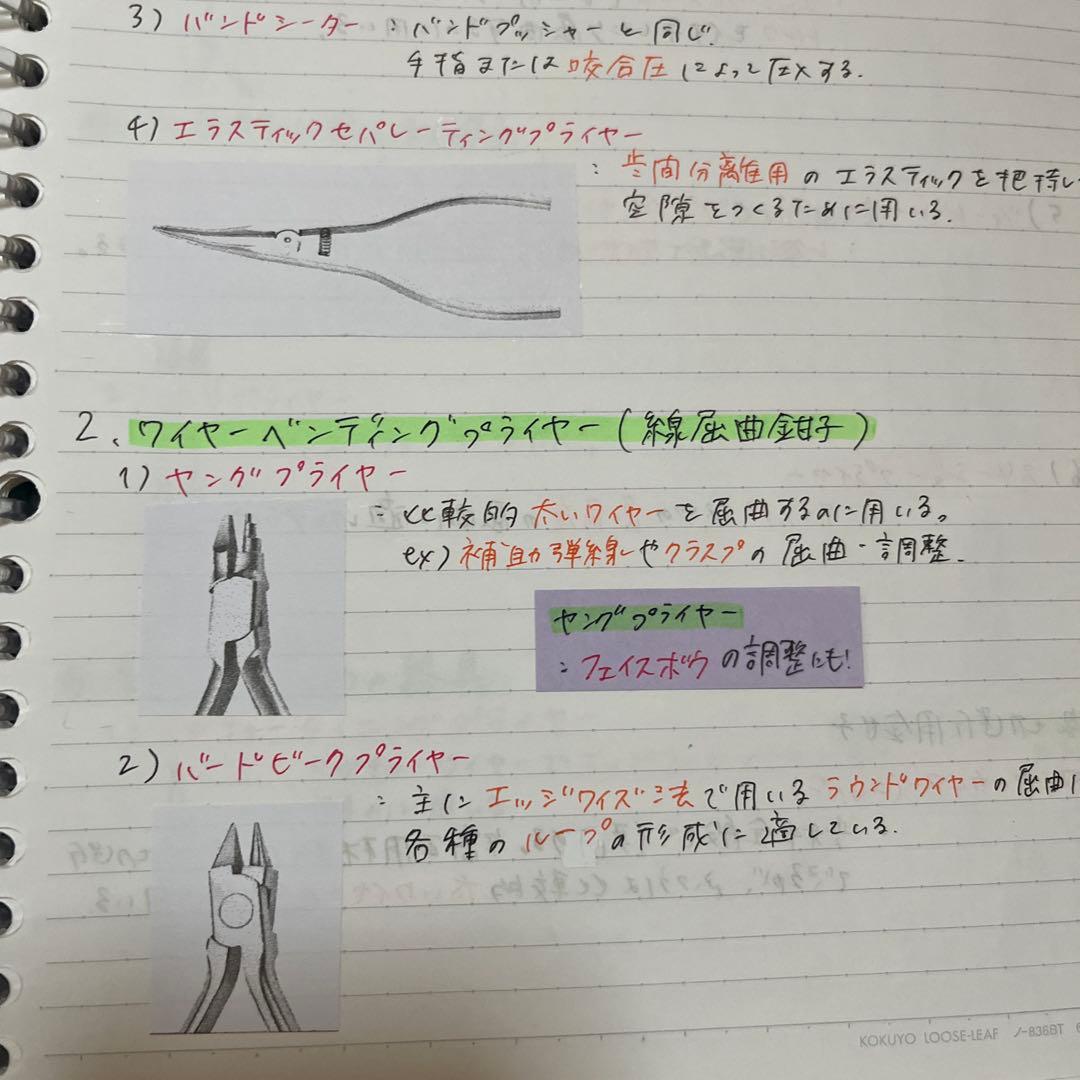 3) バンドシーター : バンドプッシャーと同じ.
手指または咬合圧によって圧入する.
4) エラスティックセパレーティングプライヤー
: 歯間分離用のエラスティックを把持し
空隙をつくるために用いる.
2. ワイヤーベンディングプライヤー(線屈曲鉗子)
1) ヤングプライヤー
: 比較的太いワイヤーを屈曲するのに用いる。
ex) 補助弾線やクラスプの屈曲・調整.
ヤングプライヤー
: フェイスボウの調整にも!
2) バードビークプライヤー
: 主にエッジワイズ法で用いるラウンドワイヤーの屈曲
各種のループの形成に適している.
KOKUYO LOOSE-LEAF ノ-836BT